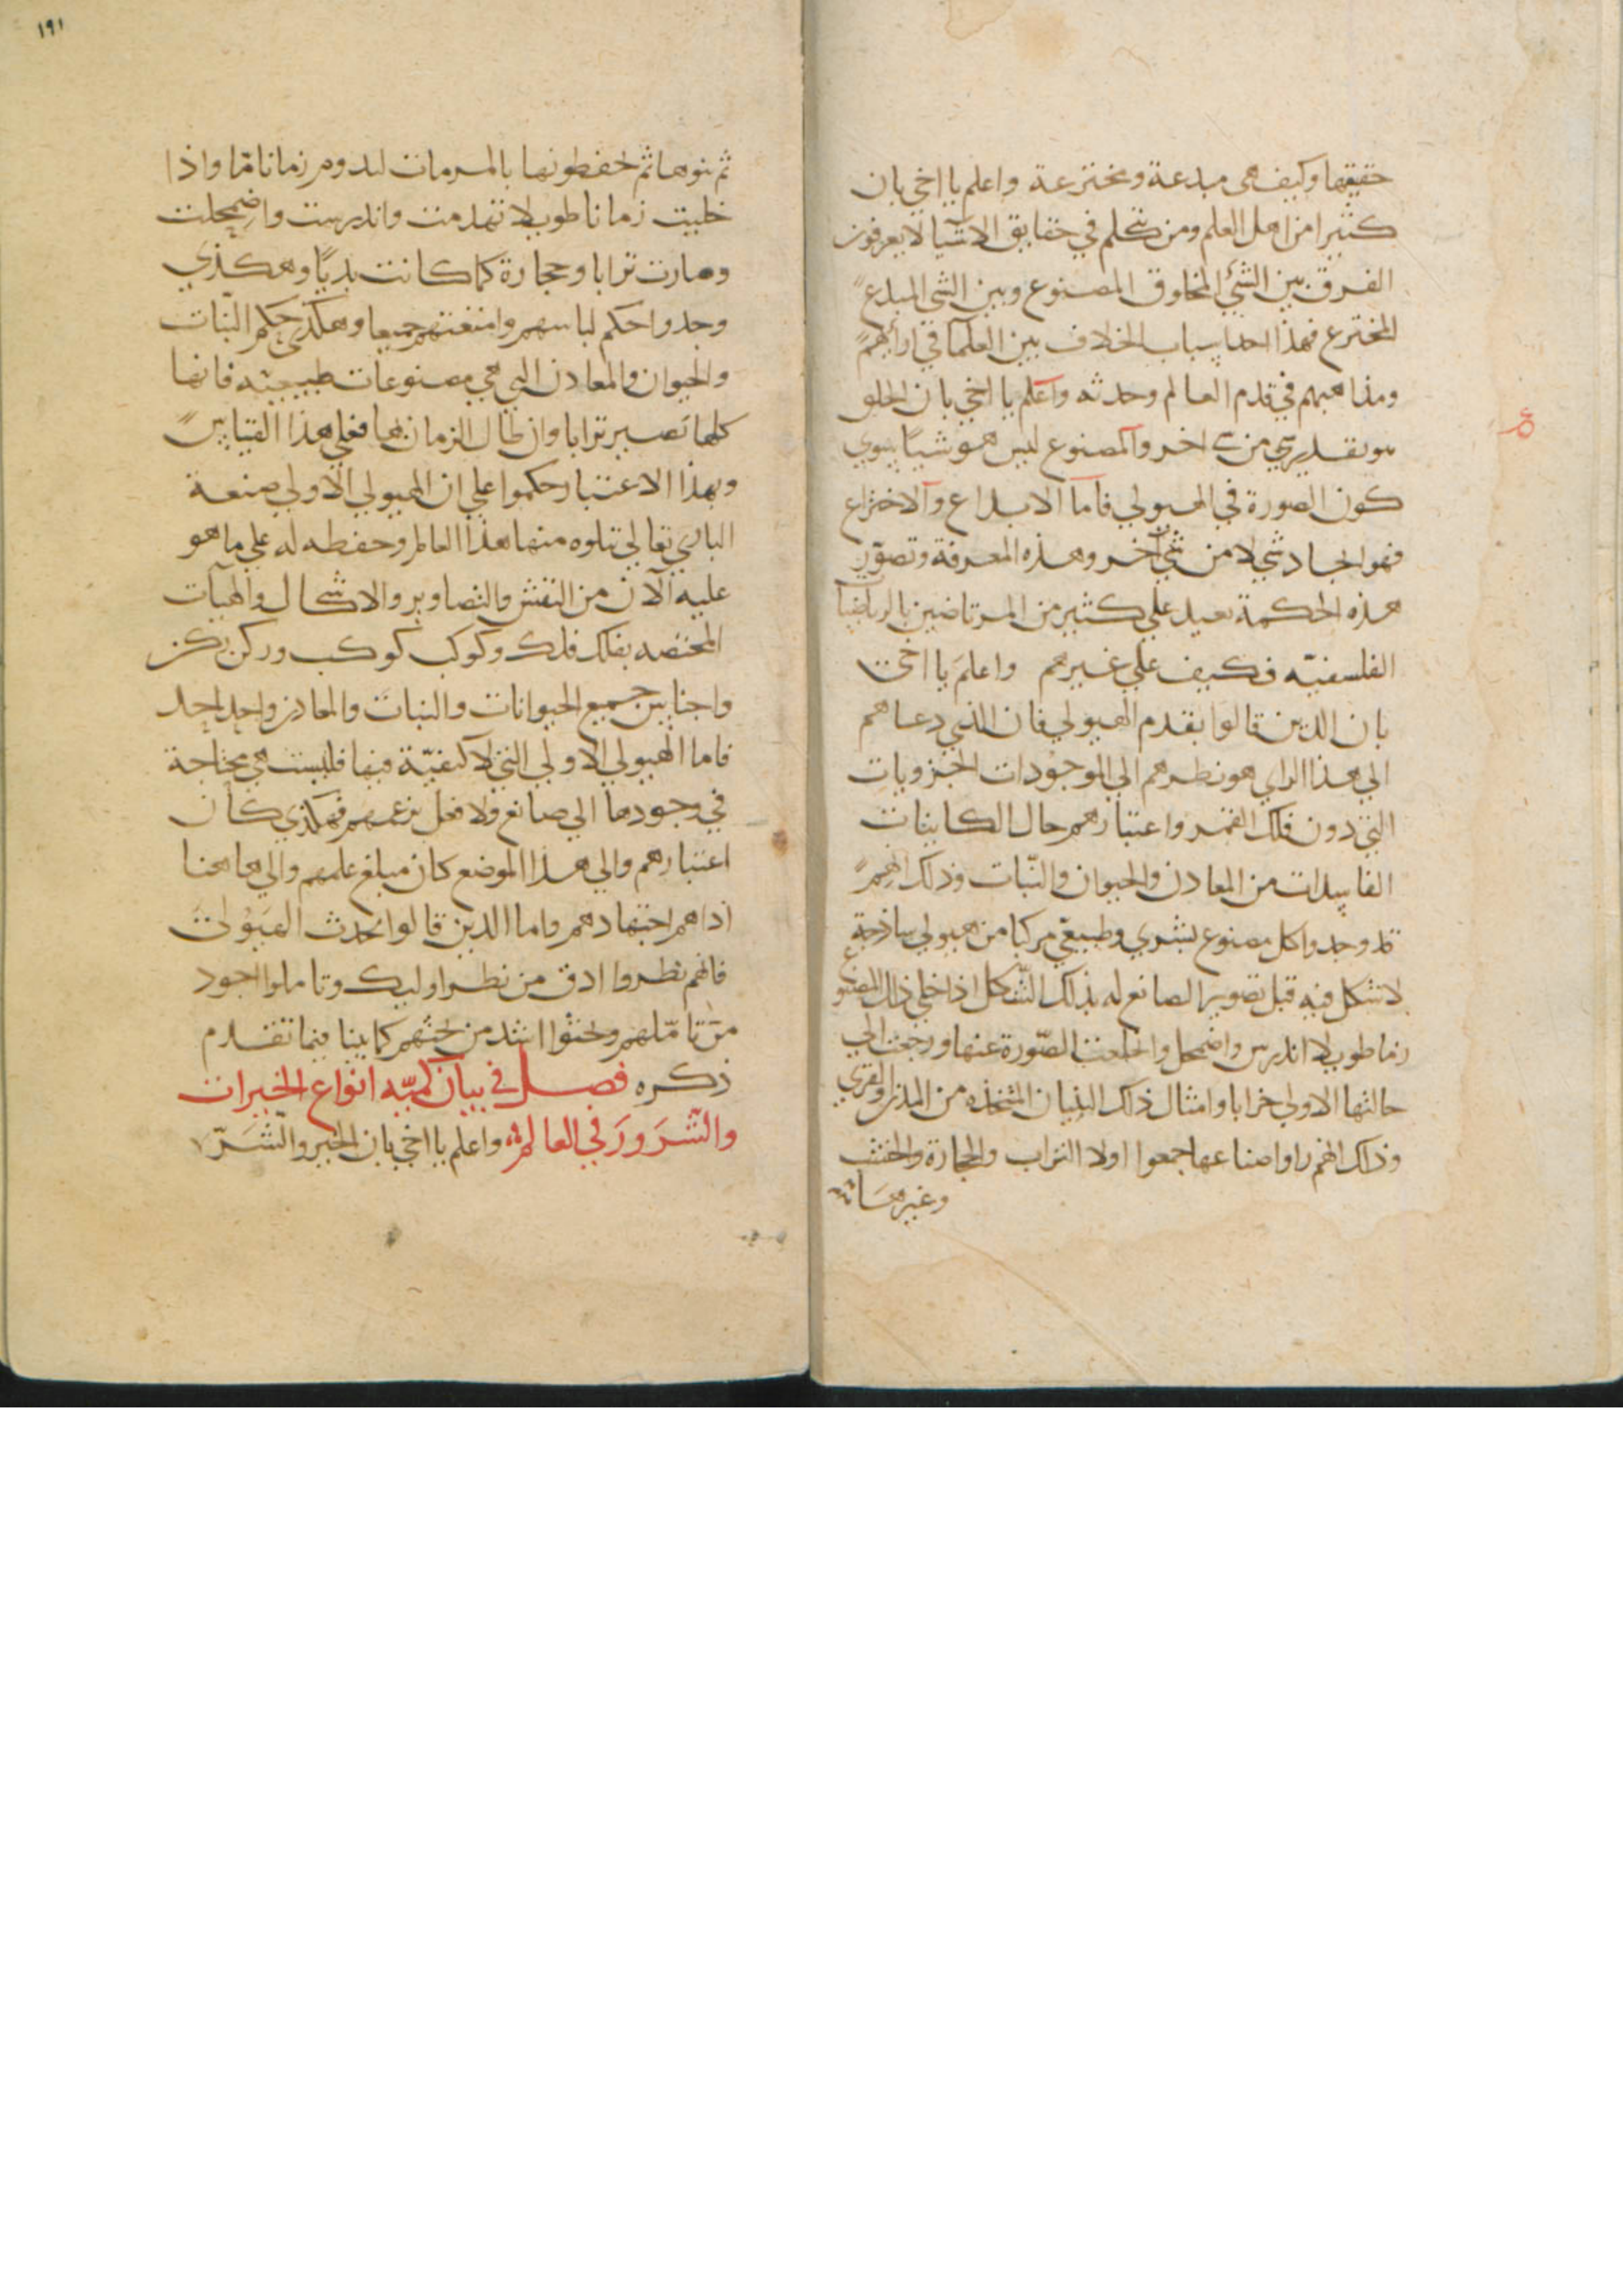 حقيقها وكيف هى مبدعة ومخترعة واعلم يا اخي بان
كثيرا من اهل العلم ومن تكلم في حقايق الاشيا لا يعرفون
الفرق بين الشئ المخلوق المصنوع وبين الشى المبدع
المخترع فهذا احد اسباب الخلاف بين العلما في ارائهم
ومذاهبهم في قدم العالم وحدثه واعلم يا اخي بان الخلق
هو تقدير شي من شي اخر والمصنوع ليس هو شياً سوي
كون الصورة في الهيولي فاما الابداع والاختراع
فهو ايجاد شي لا من شي اخر وهذه المعرفة وتصور
هذه الحكمة بعيد علي كثير من المرتاضين بالرياضيات
الفلسفيه فكيف علي غيرهم واعلم يا اخي
بان الذين قالوا بقدم الهيولي فان الذي دعاهم
الي هذا الراي هو نظرهم الي الموجودات الجزويات
التي دون فلك القمر واعتبارهم حال الكاينات
الفاسدات من المعادن والحيوان والنبات وذلك انهم
قد وجدوا كل مصنوع بشري وطبيعي مركبا من هيولي ساذجة
لا شكل فيه قبل تصوير الصانع له بذلك الشكل اذا خلي ذلك المصنوع
زما طويلا اندرس واضمحل وانخلعت الصورة عنها ورجعت الي
حالتها الاولي خرابا وامثال ذلك البنيان المتخذه من المدن والقري
وذلك انهم راوا صناعها جمعوا اولا التراب والحجارة والخشب
وغيرها
١٩١
ثم بنوها ثم يحفظونها بالمرمات لتدوم زمانا مّا واذا
خليت زمانا طويلا تهدمت واندرست واضمحلت
وصارت ترابا وحجارة كما كانت بديّا وهكذي
وجدوا حكم لباسهم وامتعتهم جميعا وهكذي حكم النبات
والحيوان والمعادن التي هي مصنوعات طبيعيه فانها
كلها تصير ترابا وان طال الزمان بها فعلي هذا القياس
وبهذا الاعتبار حكموا علي ان الهيولي الاولي صنعة
الباري تعالي بناوه منها هذا العالم وحفظه له علي ما هو
عليه الآن من النقش والتصاوير والاشكال والهيآت
المختصه بفلك فلك وكوكب كوكب وركن ركن
واجناس جميع الحيوانات والنبات والمعادن واحد واحد
فاما الهيولي الاولي التي لا كيفيّة فيها فليست هي محتاجة
في وجودها الي صانع ولا فعل بزعمهم فهكذي كان
اعتبارهم والي هذا الموضع كان مبلغ علمهم والي هاهنا
اداهم اجتهادهم واما الذين قالوا بحدث الهيولي
فانهم نظروا ادق من نظر اوليك وتاملوا اجود
من تاملهم وبحثوا اشد من بحثهم كما بينا فيما تقدم
ذكره فصل في بيان كميّه انواع الخيرات
والشرور في العالم واعلم يا اخي بان الخير والشرّ